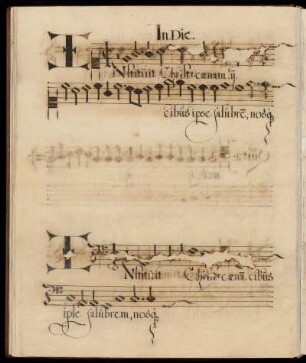 In Die.
INstituit Christus cœnam. ij.
cibus ipse salubrē, nosq̃
INstituit Christus cœnā. cibus
ipse salubrem, nosq̃